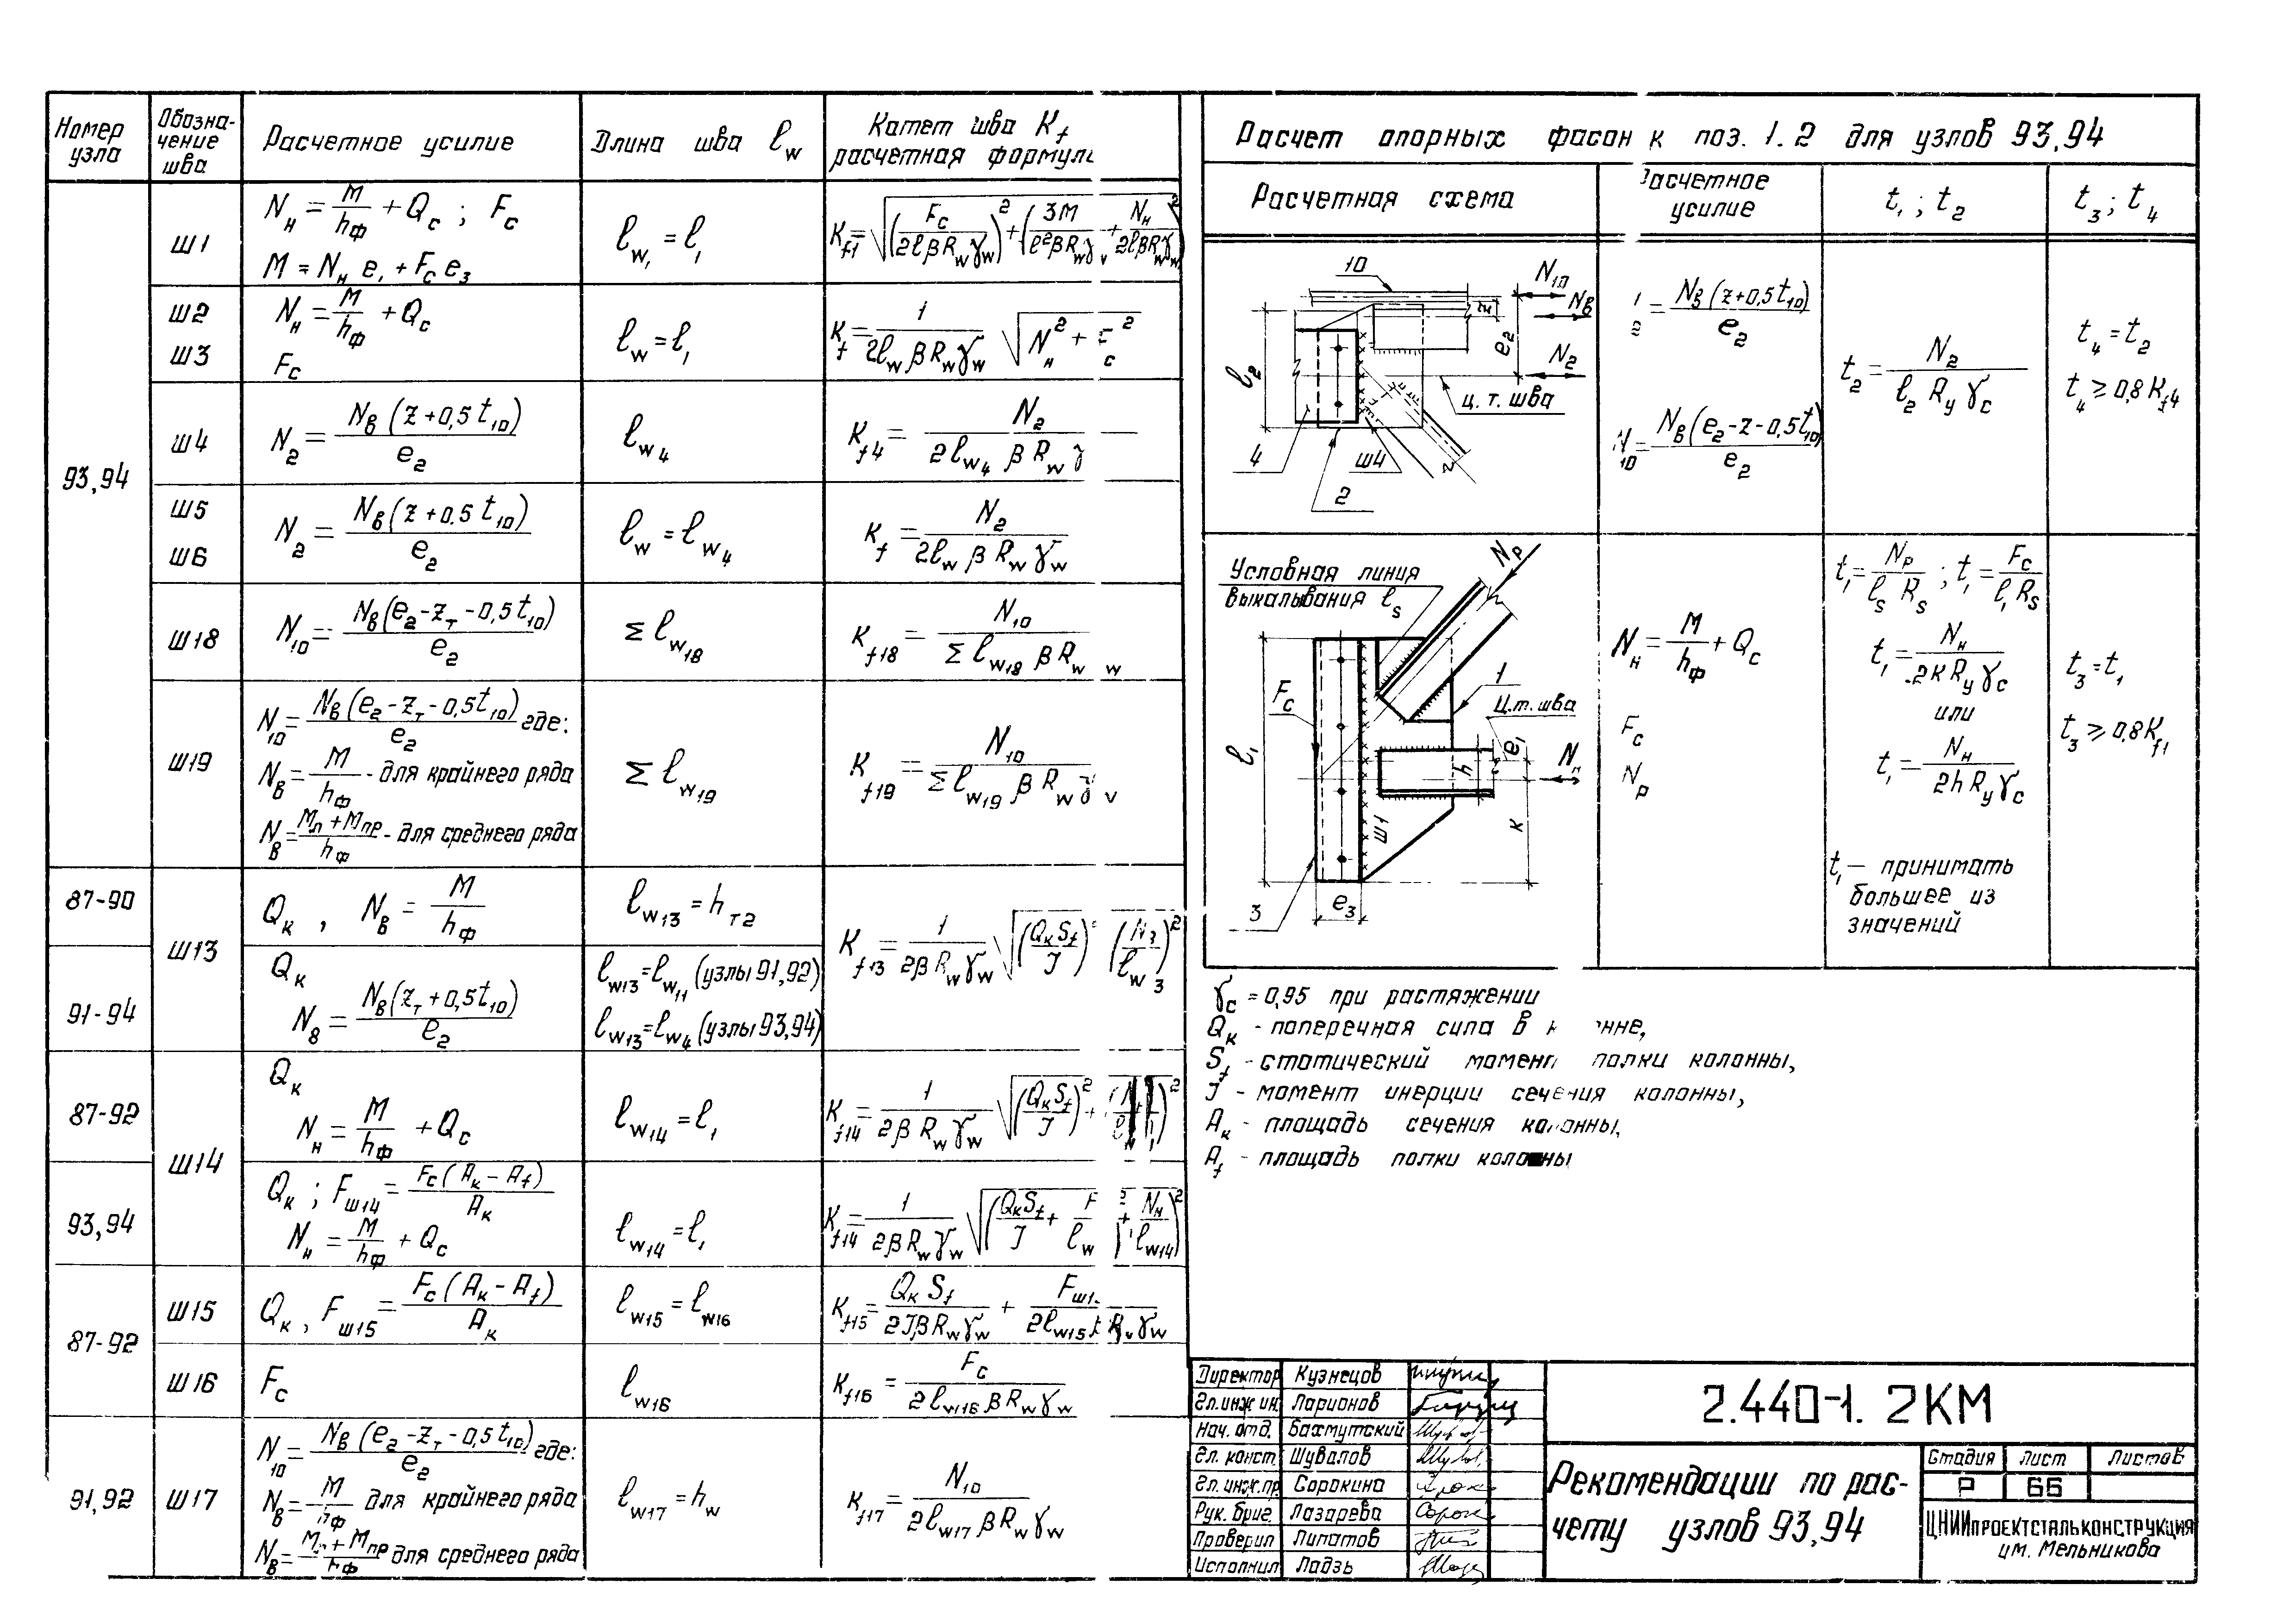 Номер узла
Обозначение шва
Расчетное усилие
Длина шва ℓw
Катет шва Kf расчетная формула
93,94
Ш1
Nн = M/hф + Qс ; Fс
M = Nн e1 + Fс e3
ℓw1 = ℓ1
Kf1 = √((Fс/2ℓβRwγw)² + (3M/ℓ²βRwγw + Nн/2ℓβRwγw)²)
Ш2
Ш3
Nн = M/hф + Qс
Fс
ℓw = ℓ1
Kf = 1/2ℓwβRwγw √(Nн² + Fс²)
Ш4
N2 = Nв(z+0,5t10)/e2
ℓw4
Kf4 = N2/2ℓw4 β Rw γ
Ш5
Ш6
N2 = Nв(z+0,5t10)/e2
ℓw = ℓw4
Kf = N2/2ℓw β Rw γw
Ш18
N10 = Nв(e2-zт-0,5t10)/e2
Σℓw18
Kf18 = N10/Σℓw18 β Rw w
Ш19
N10 = Nв(e2-zт-0,5t10)/e2 где:
Nв = M/hф - для крайнего ряда
Nв = Mл+Mпр/hф - для среднего ряда
Σℓw19
Kf19 = N10/Σℓw19 β Rw γ
87-90
Ш13
Qк , Nв = M/hф
ℓw13 = hт2
Kf13 = 1/2βRwγw √((QкSf/J)² (N/ℓw 3)²)
91-94
Qк
N8 = Nв(zт+0,5t10)/e2
ℓw13 = ℓw11 (узлы 91,92)
ℓw13 = ℓw4 (узлы 93,94)
87-92
Ш14
Qк
Nн = M/hф + Qс
ℓw14 = ℓ1
Kf14 = 1/2βRwγw √((QкSf/J)² + ( )²)
93,94
Qк ; Fш14 = Fс(Aк-Af)/Aк
Nн = M/hф + Qс
ℓw14 = ℓ1
Kf14 = 1/2βRwγw √((QкSf/J + F/ℓw)² + (Nн/ℓw14)²)
87-92
Ш15
Qк , Fш15 = Fс(Aк-Af)/Aк
ℓw15 = ℓw16
Kf15 = QкSf/2JβRwγw + Fш1/2ℓw15 Rwγw
Ш16
Fс
ℓw16
Kf16 = Fс/2ℓw16 β Rwγw
91,92
Ш17
N10 = Nв(e2-zт-0,5t10)/e2 где:
Nв = M/hф для крайнего ряда
Nв = Mл+Mпр/hф для среднего ряда
ℓw17 = hw
Kf17 = N10/2ℓw17 βRwγw
Расчет опорных фасонк поз. 1.2 для узлов 93,94
Расчетная схема
Расчетное усилие
t1 ; t2
t3 ; t4
10
N10
Nв
z
e2
N2
ℓ2
ц.т. шва
4
Ш4
2
2 = Nв(z+0,5t10)/e2
N10 = Nв(e2-z-0,5t10)/e2
t2 = N2/ℓ2 Ry γс
t4 = t2
t4 ≥ 0,8Kf4
Условная линия
выкалывания ℓs
Nр
1
Fс
Ц.т. шва
e1
ℓ1
h
Nн
Ш1
к
3
e3
Nн = M/hф + Qс
Fс
Nр
t1 = Nр/ℓs Rs ; t1 = Fс/ℓ1 Rs
t1 = Nн/2кRyγс
или
t1 = Nн/2hRyγс
t1 — принимать
большее из
значений
t3 = t1
t3 ≥ 0,8Kf1
γс = 0,95 при растяжении
Qк - поперечная сила в к нне,
Sf - статический момент полки колонны,
J - момент инерции сечения колонны,
Aк - площадь сечения колонны,
Af - площадь полки колонны
Директор Кузнецов
Гл.инж.ин. Ларионов
Нач. отд. Бахмутский
Гл. конст. Шувалов
Гл. инж.пр. Сорокина
Рук. бриг. Лазарева
Проверил Липатов
Исполнил Ладзь
2.440-1. 2КМ
Рекомендации по рас-
чету узлов 93,94
Стадия Лист Листов
Р 66
ЦНИИПРОЕКТСТАЛЬКОНСТРУКЦИЯ
им. Мельникова